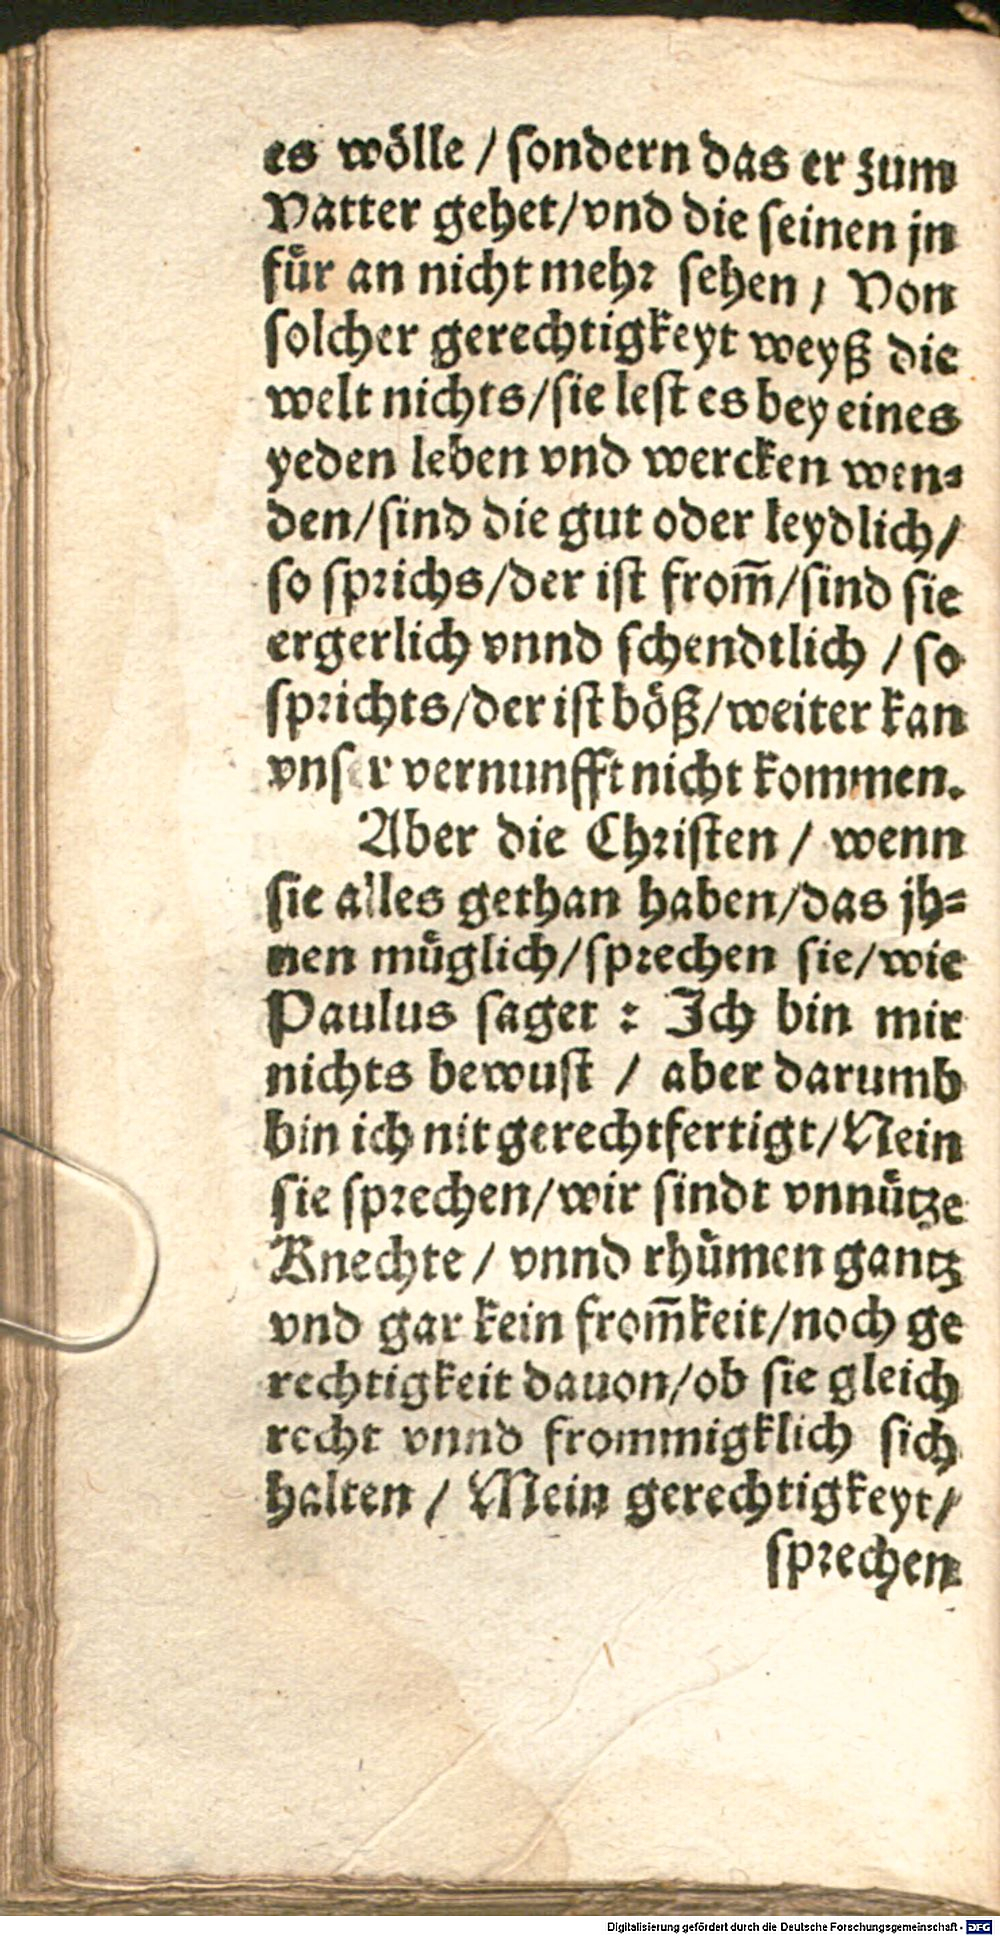 es wölle / ſondern das er zum
Vatter gehet/vnd die ſeinen jn
für an nicht mehr ſehen / Von
ſolcher gerechtigkeyt weyß die
welt nichts/ſie leſt es bey eines
yeden leben vnd wercken wen⸗
den/ſind die gut oder leydlich/
ſo ſprichs/der iſt from̄/ſind ſie
ergerlich vnnd ſchendtlich / ſo
ſprichts/der iſt böß/weiter kan
vnſer vernunfft nicht kommen.
Aber die Chriſten / wenn
ſie alles gethan haben/das jh⸗
nen müglich/ſprechen ſie/wie
Paulus ſaget : Ich bin mir
nichts bewuſt / aber darumb
bin ich nit gerechtfertigt/Nein
ſie ſprechen/wir ſindt vnnütze
Knechte / vnnd rhümen gantz
vnd gar kein from̄keit/noch ge
rechtigkeit dauon/ob ſie gleich
recht vnnd frommigklich ſich
halten / Mein gerechtigkeyt/
ſprechen
Digitalisierung gefördert durch die Deutsche Forschungsgemeinschaft - DFG